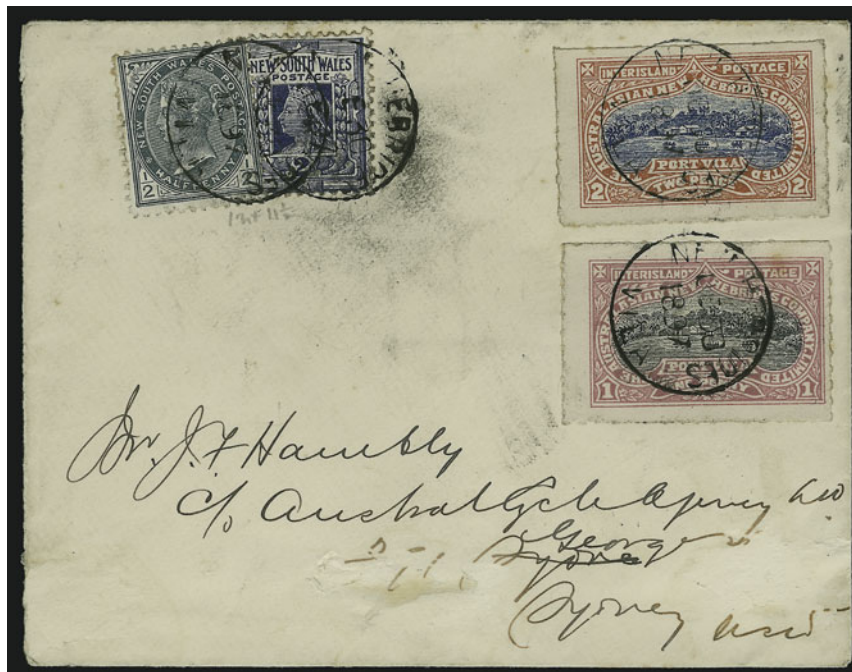 NEW SOUTH WALES POSTAGE
1/2 HALFPENNY 1/2
NEW SOUTH WALES
POSTAGE
INTERISLAND POSTAGE
AUSTRALASIAN NEW HEBRIDES COMPANY LIMITED
PORT VILA
2 TWO PENCE 2
INTERISLAND POSTAGE
THE AUSTRALASIAN NEW HEBRIDES COMPANY LIMITED
PORT VILA
1 1
NEW HEBRIDES
VILA
Mr. J. F. Hambly
c/o Austral Cycle Agency
George St
Sydney
Sydney NSW